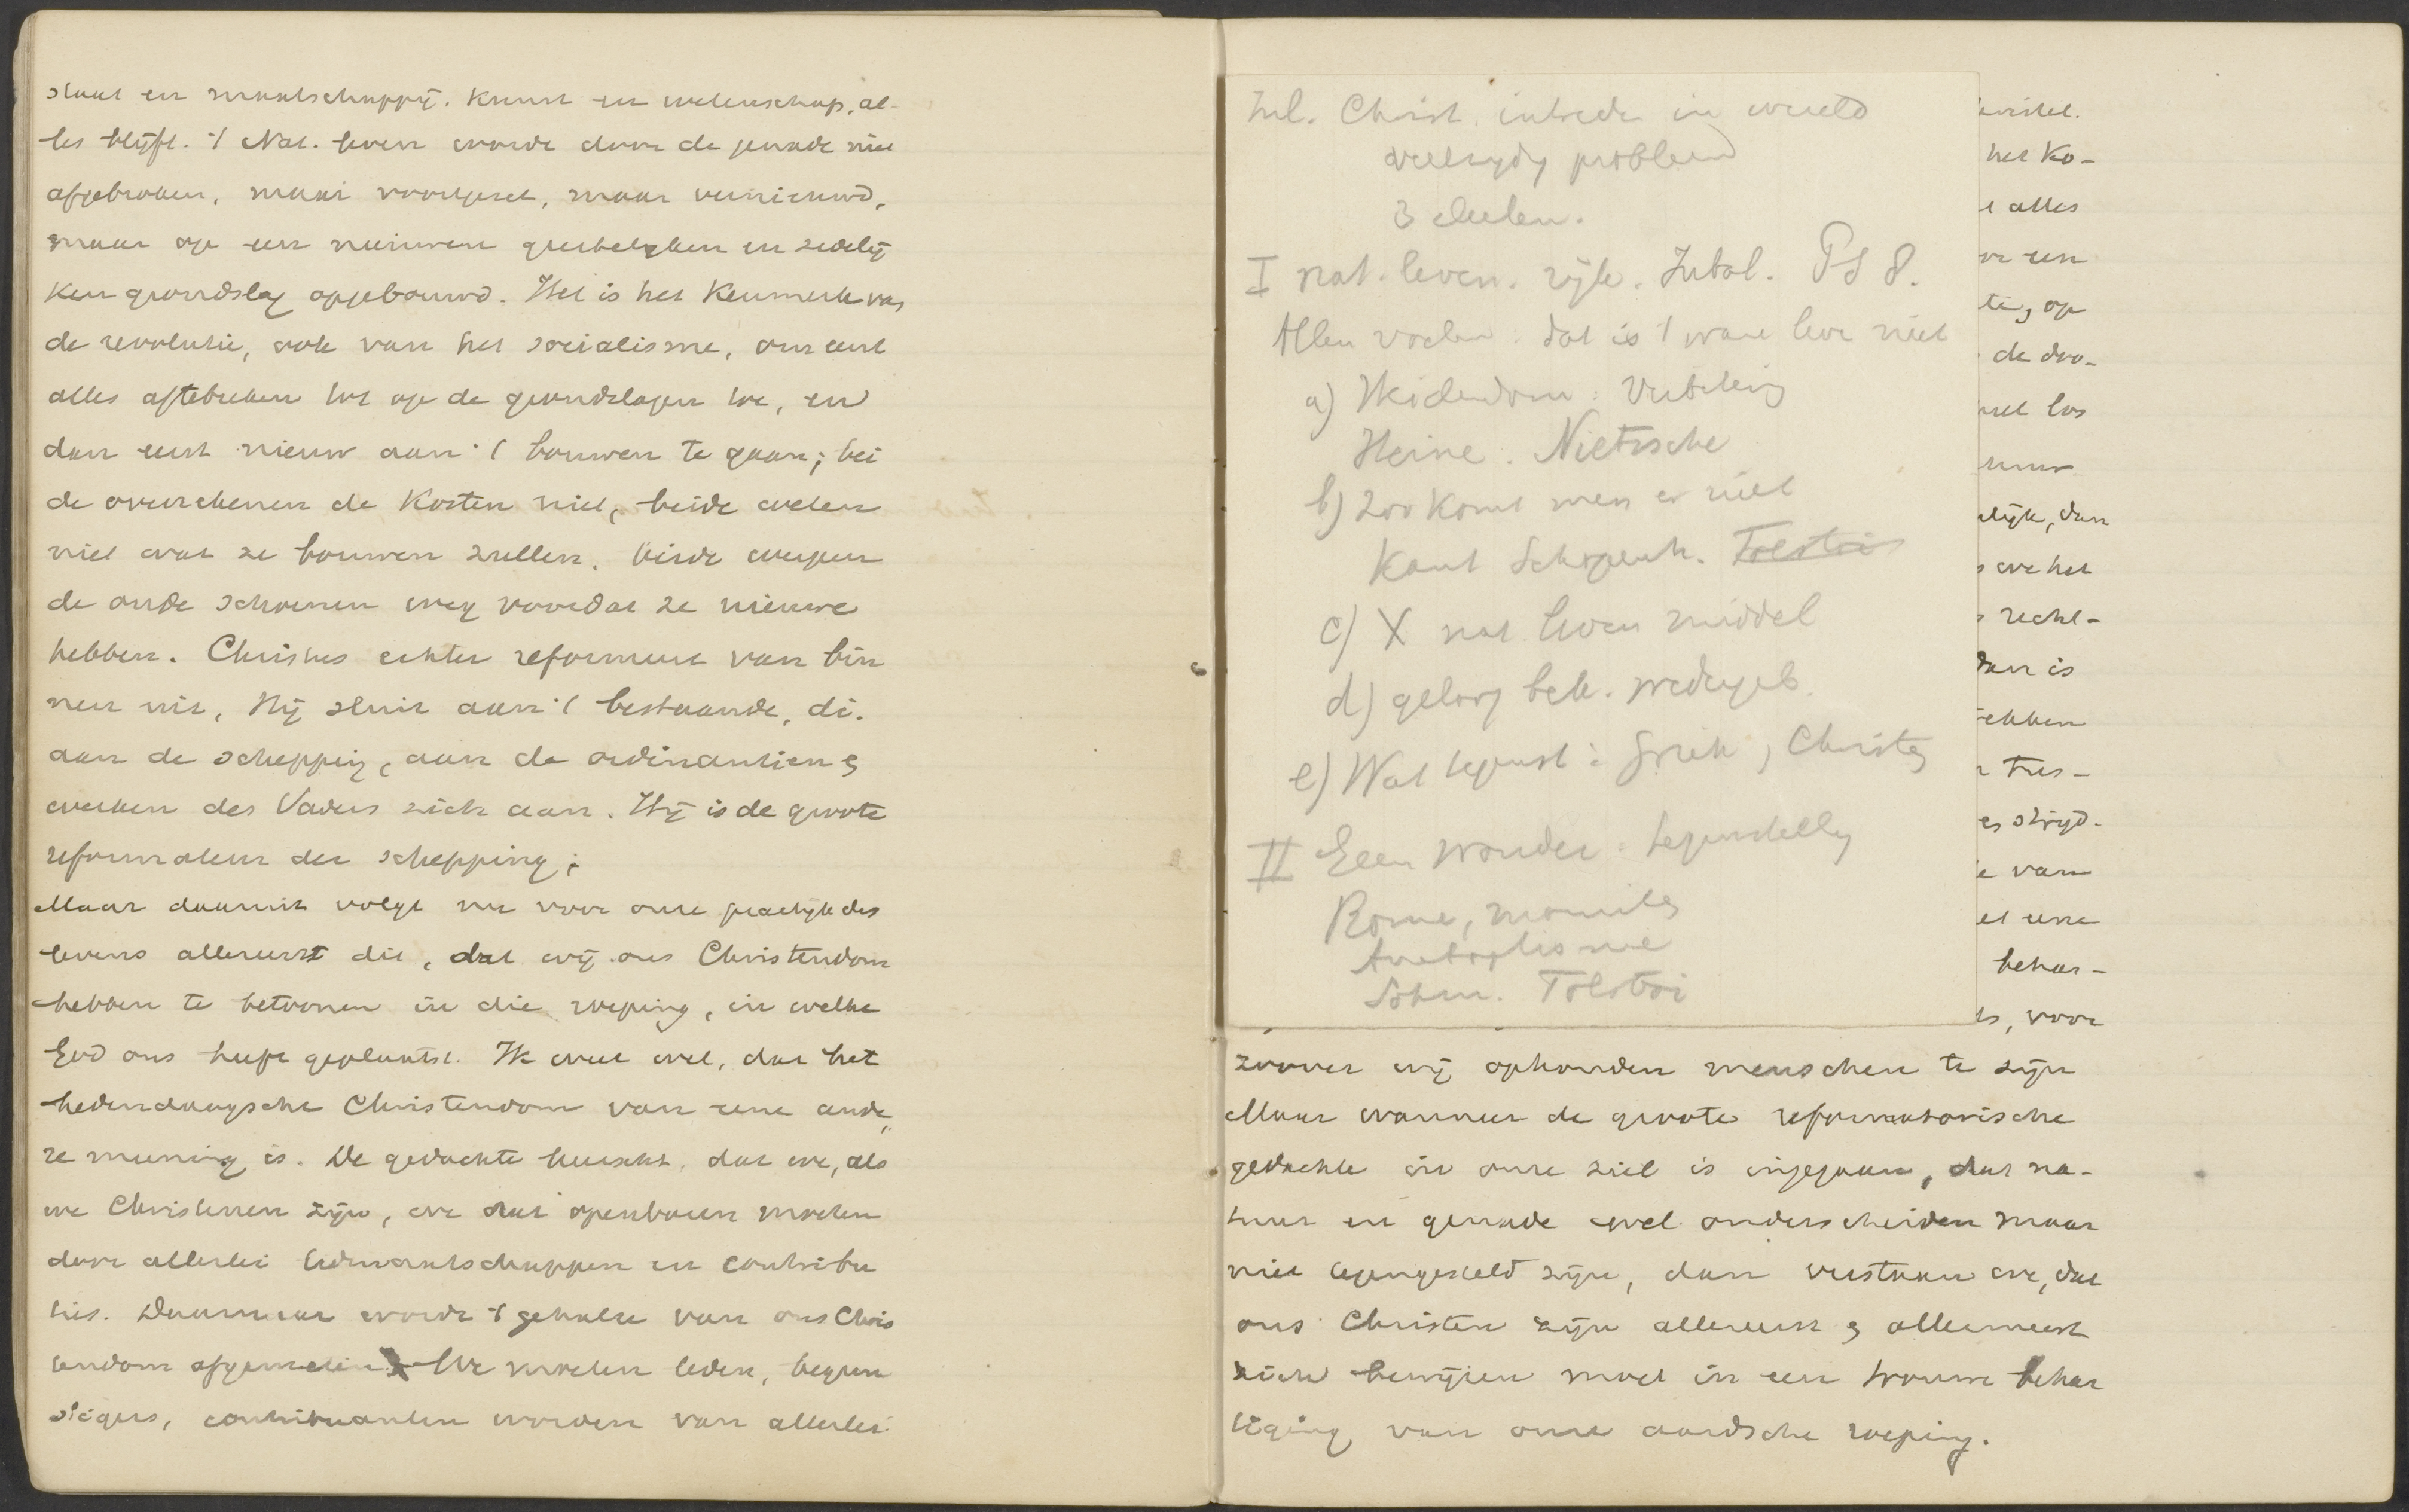 staat en maatschappij. Kunst en wetenschap, al-
les blijft. 't Nat. leven wordt door de genade niet
afgebroken, maar voortgezet, maar vernieuwd,
maar op een nieuwen geestelyken en zedelij
ken grondslag opgebouwd. Het is het Kenmerk van
de revolutie, ook van het socialisme, om eerst
alles aftebreken tot op de grondslagen toe, en
dan eerst nieuw aan 't bouwen te gaan; bei
de overrekenen de Kosten niet, beide weten
niet wat ze bouwen zullen, beide werpen
de oude schoenen weg voordat ze nieuwe
hebben. Christus echter reformeert van bin
nen uit, Hij sluit aan 't bestaande, di.
aan de schepping, aan de ordinantien &
werken des Vaders zich aan. Hij is de groote
reformateur der schepping;
Maar daaruit volgt nu voor onze practijk des
levens allereerst dit, dat wij ons Christendom
hebben te betoonen in die roeping, in welke
God ons heeft geplaatst. Ik weet wel, dat het
hedendaagsche Christendom van eene ande
re meening is. De gedachte heerscht, dat we, als
we Christenen zijn, we dat openbaren moeten
door allerlei lidmaatschappen en contribu
ties. Daarnaar wordt 't gehalte van ons Chris
tendom afgemeten. We moeten leden, begun
stigers, contribuanten worden van allerlei
Inl. Christ. intrede in wereld
veelzydig probleem
3 deelen.
I nat. leven. rijk. Jubal. PS 8.
Allen voelen: dat is 't ware leve niet
a) Heidendom: Verbeteling
Heine. Nietzsche
b) Zoo komt men er niet
Kant Schopenh. Tolstoi
c) X nat leven middel
d) geloof bek. wedergeb.
e) Wat tegenst: Griek, Christen
II Geen wonder: tegenstelling
Rome, monniken
Anabaptisme
Sohm. Tolstoi
het Ko-
alles
een
op
de doo-
los
dan
we het
recht-
dan is
ebben
tus-
strijd.
van
eene
behar-
voor
zoover wij ophouden menschen te zijn
Maar wanneer de groote reformatorische
gedachte in onze ziel is ingegaan, dat na-
tuur en genade wel onderscheiden maar
niet tegengesteld zijn, dan verstaan we, dat
ons Christen zijn allereerst & allermeest
zich bewijzen moet in een trouwe behar
tiging van onze aardsche roeping.